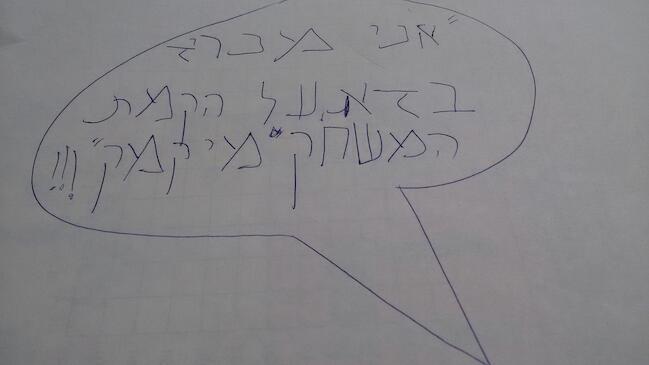 "אני מכריז
בזאת על הקמת
המשחק "מיקמק"!!!